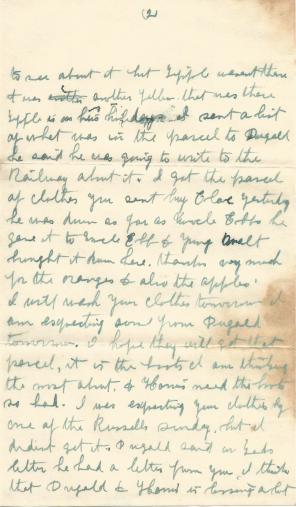 (2)
to see about it but Tipple wasent there
it was another yellow that was there
Tipple is on his holidays. I sent a list
of what was in the parcel to Dugald
he said he was going to write to the
Railway about it. I got the parcel
of clothes you sent buy Cloe yesterdy
he was down as far as Uncle Ebbs he
gave it to Uncle Ebb & Young Walt
brought it down here. thanks very much
for the oranges & also the apples.
I will wash your clothes tomorrow I
am expecting some from Dugald
tomorrow. I hope they will get that
parcel, it is the boots I am thinking
the most about. & need the boots
so bad. I was expecting your clothes by
one of the Russells sunday, but I
dident get it. Dugald said in
letter he had a letter from you, I think
that Dugald & is a lot